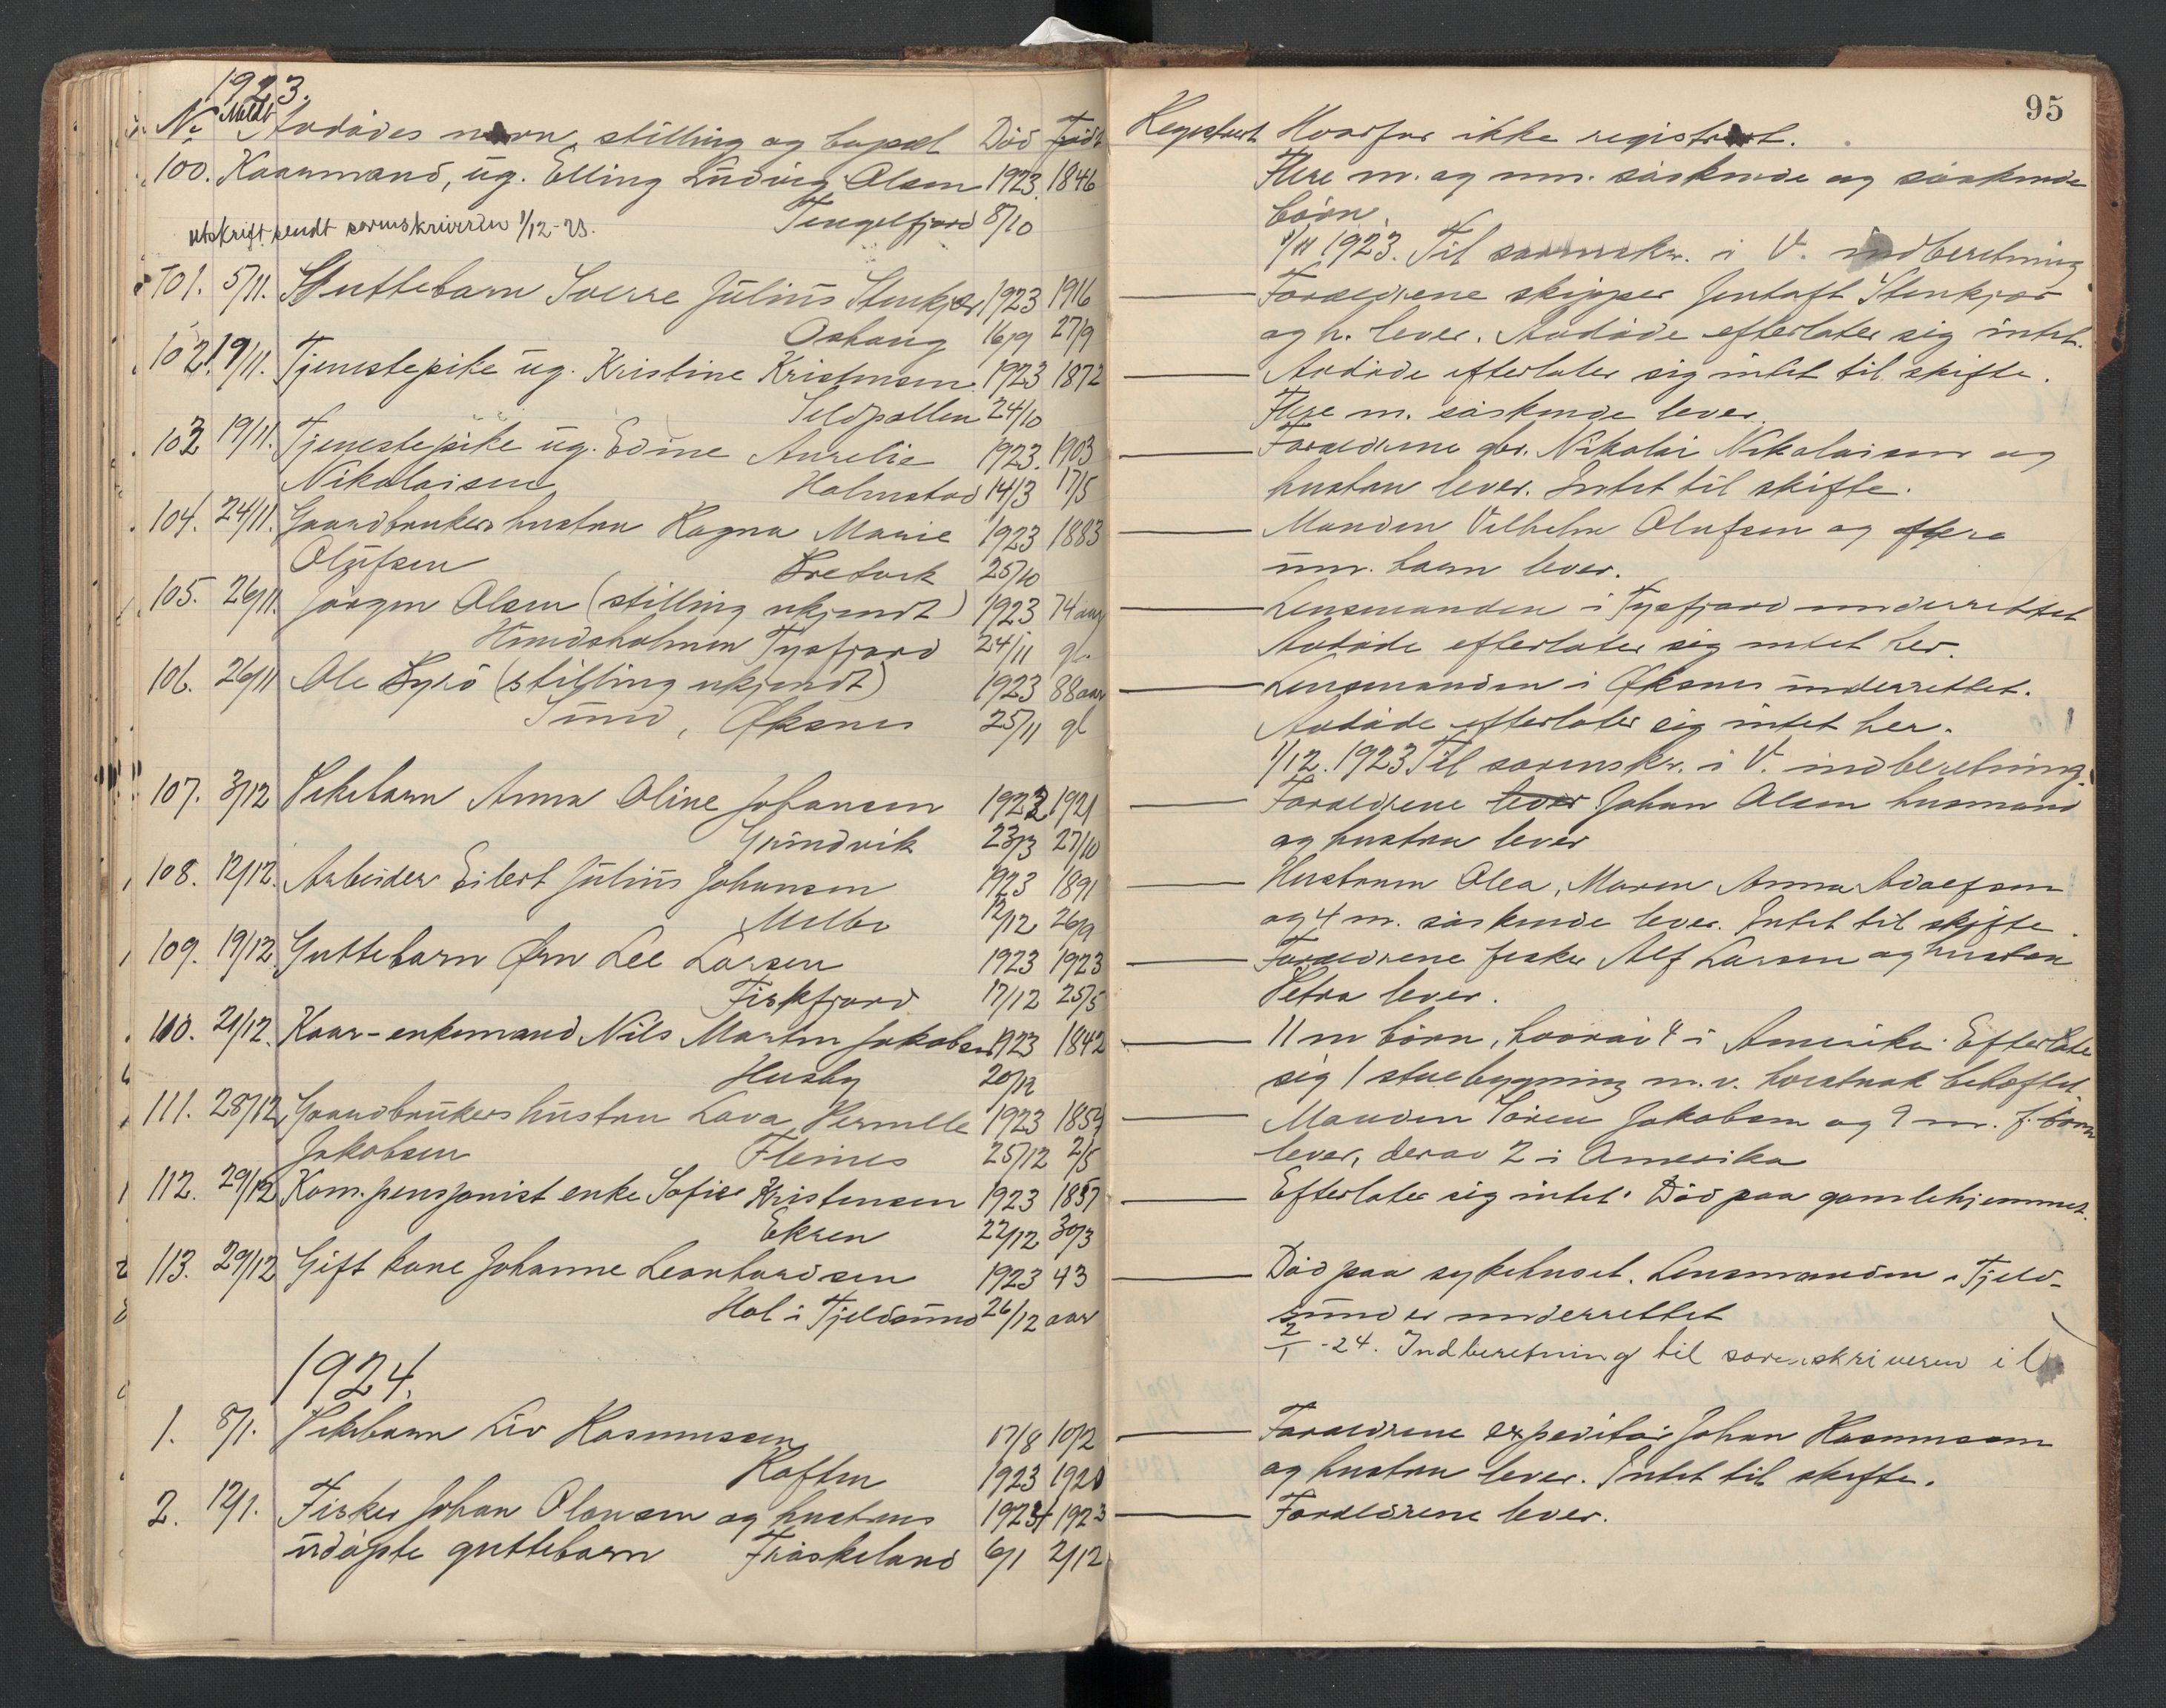 1923.
No Meldt Avdødes navn, stilling og bopæl Død Født
100. Kaarmand, ug. Elling Ludvig Olsen 1923. 1846
utskrift sendt sorenskriveren 1/12-23. Tengelfjord 8/10
101. 5/11. Guttebarn Sverre Julius Stenkjær 1923 1916
16/9 27/9
102. 19/11. Tjenestepike ug. Kristine Kristensen 1923 1872
Sildpollen 24/10
103 19/11. Tjenestepike ug. Edine Aurelie 1923. 1903
Nikolaisen Holmstad 14/3 17/5
104. 24/11. Gaardbrukers hustru Ragna Marie 1923 1883
Olufsen Bretvik 25/10
105. 26/11. Jørgen Olsen (stilling ukjendt) 1923 74 aar
Hundsholmen Tysfjord 24/11 gl.
106. 26/11 Ole Byrø (stilling ukjendt) 1923 88 aar
Sund, Øksnes 25/11 gl
107. 3/12 Pikebarn Anna Oline Johansen 1923 1921
Grundvik 23/3 27/10
108. 12/12. Arbeider Eilert Julius Johansen 1923 1891
Melbo 12/12 26/9
109. 19/12. Guttebarn Ørn Lee Larsen 1923 1923
Fiskfjord 17/12 25/5
110. 21/12. Kaar-enkemand Nils Martin Jakobsen 1923 1842
Husby 20/12
111. 28/12. Gaardbrukers hustru Lava Pernille 1923 1859
Jakobsen Fleines 25/12 2/5
112. 29/12 Kom. pensjonist enke Sofie Kristensen 1923 1857
Ekren 22/12 30/3
113. 29/12 Gift kone Johanne Leonhardsen 1923 43
Hol i Tjeldsund 26/12 aar
1924.
1. 8/1. Pikebarn Liv Rasmussen 17/8 10/2
Raften 1923 1920
2. 12/1. Fisker Johan Olausen og hustrus 1924 1923
udøpte guttebarn Frøskeland 6/1 2/12
95
Registrert Hvorfor ikke registrert.
Flere m. og um. søskende og søskende
børn
1/11 1923. Til sorenskr. i V. indberetning
Forældrene skipper Jentoft Stenkjær
og h. lever. Avdøde efterlater sig intet.
Avdøde efterlater sig intet til skifte.
Flere m. søskende lever.
Forældrene gbr. Nikolai Nikolaisen og
hustru lever. Intet til skifte.
Manden Vilhelm Olufsen og flere
um. barn lever.
Lensmanden i Tysfjord underrettet
Avdøde efterlater sig intet her.
Lensmanden i Øksnes underrettet.
Avdøde efterlater sig intet her.
1/12. 1923 Til sorenskr. i V. indberetning.
Forældrene lever Johan Olsen husmand
og hustru lever
Hustruen Olea, Maren Anna Adolfsen
og 4 m. søskende lever. Intet til skifte.
Forældrene fisker Alf Larsen og hustru
Petra lever.
11 m børn, hvorav 4 i Amerika. Efterlate
sig 1 stuebygning m. v. hvistnok beheftet
Manden Søren Jakobsen og 9 m. f. børn
lever, derav 2 i Amerika
Efterlater sig intet. Død paa gamlehjemmet.
Død paa sykehuset. Lensmanden i Tjeld-
sund er underrettet
2/1 -24. Indberetning til sorenskriveren i V.
Forældrene expeditør Johan Rasmussen
og hustru lever. Intet til skifte.
Forældrene lever.